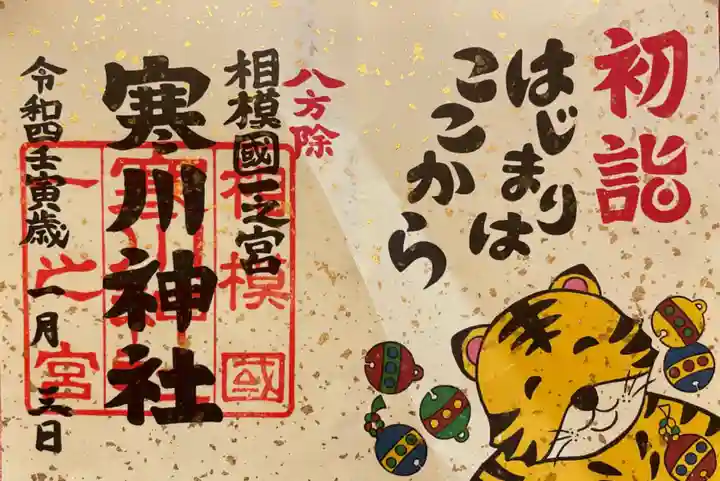 初詣
はじまりは
ここから
八方除
相模國一之宮
寒川神社
令和四壬寅歳 一月 三日
相模國
寒川神社
一之宮